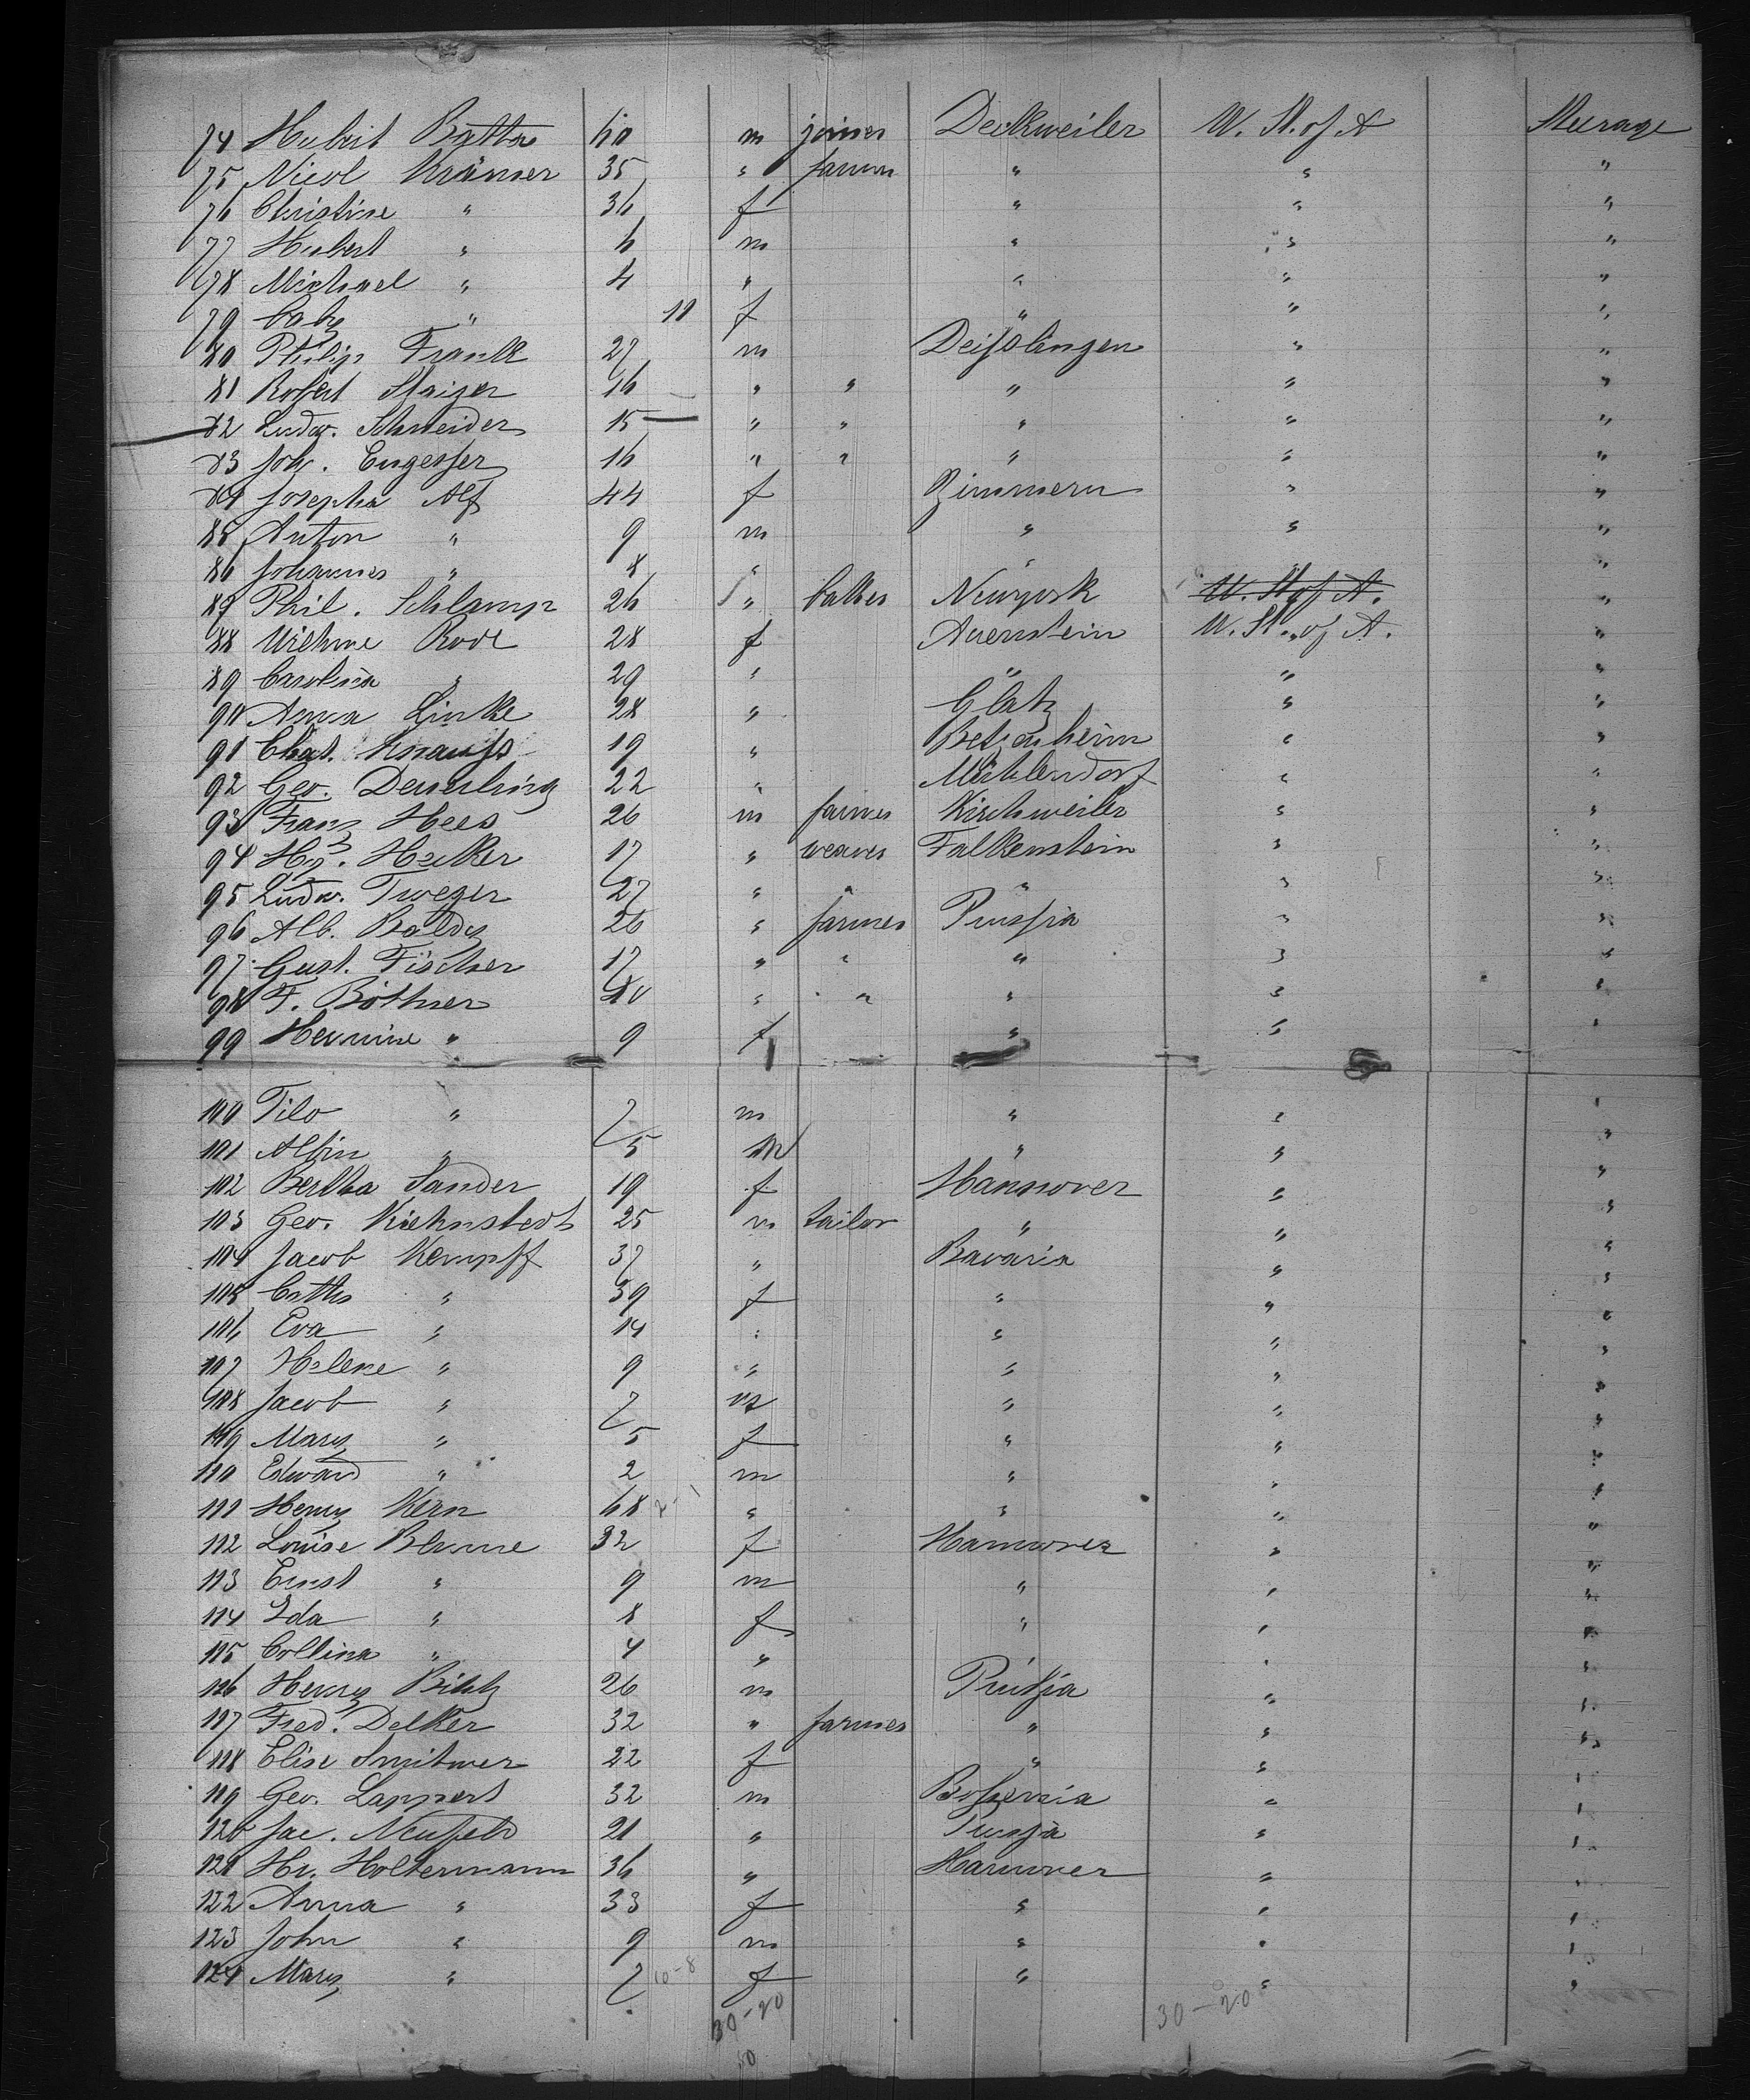 74 Hubert Batta 60 m joiner Deckweiler U. St. of A Steerage
75 Nicol Krämer 35 " farmer " " "
76 Christine " 36 f " " "
77 Hubert " 6 m " " "
78 Michael " 4 " " " "
79 baby " 10 f " " "
80 Philip Frank 27 m Deisslingen " "
81 Robert Staiger 16 " " " " "
82 Ludw. Schneider 15 " " " " "
83 Joh. Engesser 16 " " " " "
84 Josepha Alf 44 f Zimmern " "
85 Anton " 9 m " " "
86 Johannes " 8 " " "
87 Phil. Schlamp 26 " baker Newyork U. St of A. "
88 Wilhme Rode 28 f Auenstein U. St. of A. "
89 Carolina " 29 " " " "
90 Anna Linke 28 " Glatz " "
91 Chat. Knauss 19 " "  "
92 Geo. Deuerling 22 " Mühlendorf " "
93 Franz Hees 26 m farmer Kirchweiler " "
94 Hy. Hecker 17 " weaver Falkenstein " "
95 Ludw. Troeger 27 " " " " "
96 Alb. Baldy 26 " farmer Prussia " "
97 Gust. Fischer 17 " " " " "
98 F. Böthner 40 " " " " "
99 Hermine " 9 f " " "
100 Tilo " 7 m " " "
101 Albin " 5 m " " "
102 Bertha Sander 19 f Hannover " "
103 Geo. Kiehnstedt 25 m tailor " " "
104 Jacob Kempff 37 " Bavaria " "
105 Cath " 39 f " " "
106 Eva " 14 " " " "
107 Helene " 9 " " " "
108 Jacob " 7 m " " "
109 Mary " 5 f " " "
110 Edward " 2 m " " "
111 Henry Kern 68 " " " "
112 Louise Blume 32 f Hannover " "
113 Ernst " 9 m " " "
114 Ida " 8 f " " "
115 Collina " 4 " " "
116 Henry Biltz 26 m Prussia " "
117 Fred. Delker 32 " farmer " " "
118 Elise Smitmer 22 f " " "
119 Geo. Lappert 32 m Bohemia " "
120 Jac. Neufeld 21 " Prussia " "
121 Hr. Holtermann 36 " Hannover " "
122 Anna " 33 f " " "
123 John " 9 m " " "
124 Mary " 7 10-8 f " " "
30-20 30-20
10